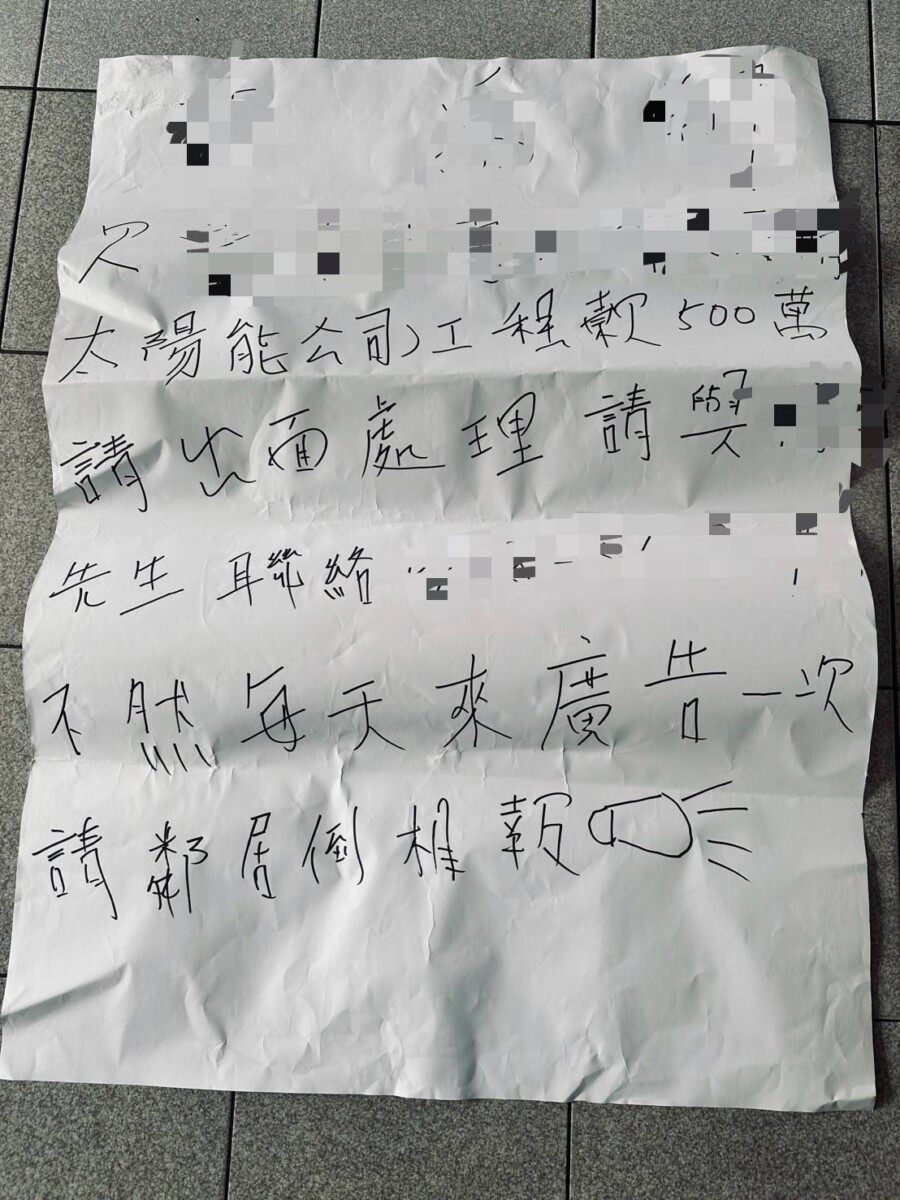 欠
太陽能公司工程款500萬
請出面處理請與
先生聯絡
不然每天來廣告一次
請鄰居倒相報